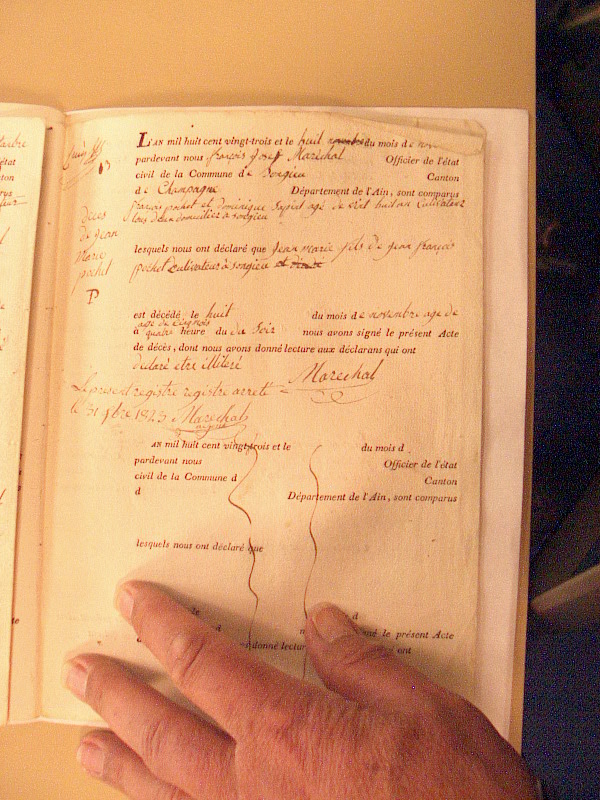 L'AN mil huit cent vingt-trois et le huit novembre du mois de nov
pardevant nous françois Josef Maréchal Officier de l'état
civil de la Commune de Songieu Canton
de Champagne Département de l'Ain, sont comparus
françois pochet et dominique agé de huit Cultivateur
tous deux domiciliés a songieu
décès
de jean
marie
pochet
lesquels nous ont déclaré que jean marie fils de jean françois
pochet Cultivateur à songieu et
P
est décédé le huit du mois de novembre age de
age de cinq mois
à quatre heure du du soir nous avons signé le présent Acte
de décès, dont nous avons donné lecture aux déclarans qui ont
declaré etre illiteré
Marechal
Le present registre registre arreté
le 31 xbre 1823 Marechal
AN mil huit cent vingt-trois et le du mois d
pardevant nous Officier de l'état
civil de la Commune d Canton
d Département de l'Ain, sont comparus
lesquels nous ont déclaré que
le d
d né le présent Acte
donné lectur ont